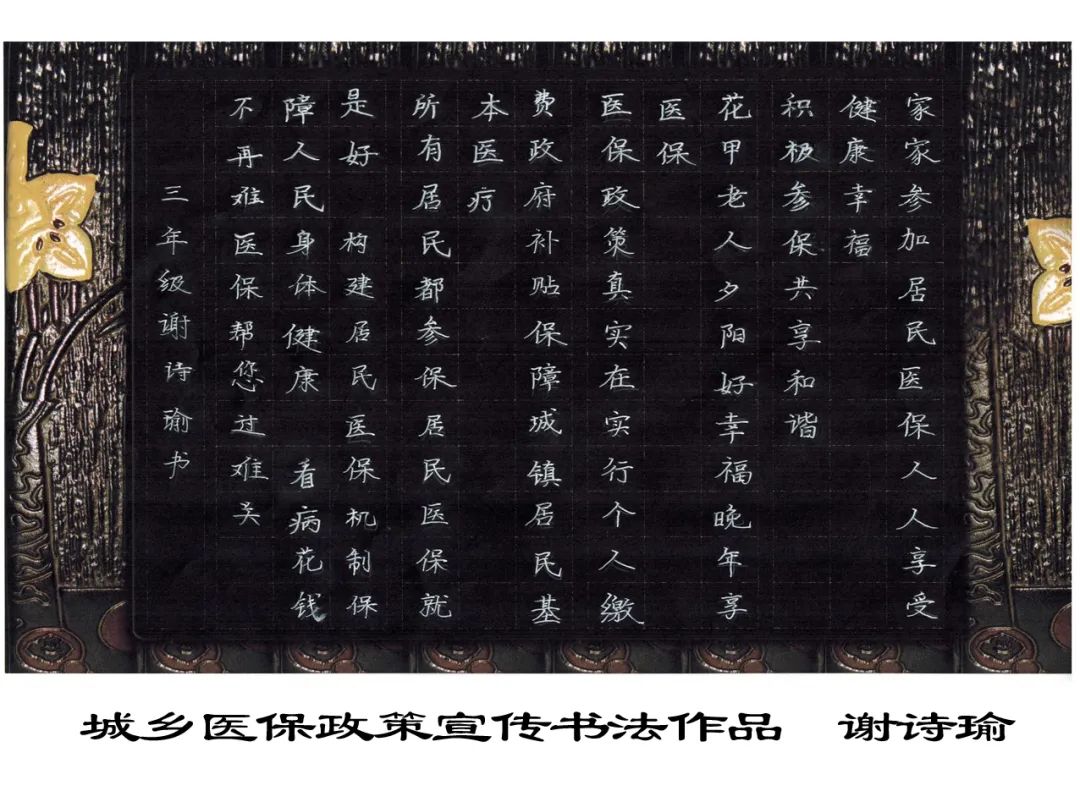 家家参加居民医保人人享受
健康幸福
积极参保共享和谐
花甲老人夕阳好幸福晚年享
医保
医保政策真实在实行个人缴
费政府补贴保障城镇居民基
本医疗
所有居民都参保居民医保就
是好 构建居民医保机制保
障人民身体健康 看病花钱
不再难医保帮您过难关
三年级谢诗瑜书
城乡医保政策宣传书法作品 谢诗瑜